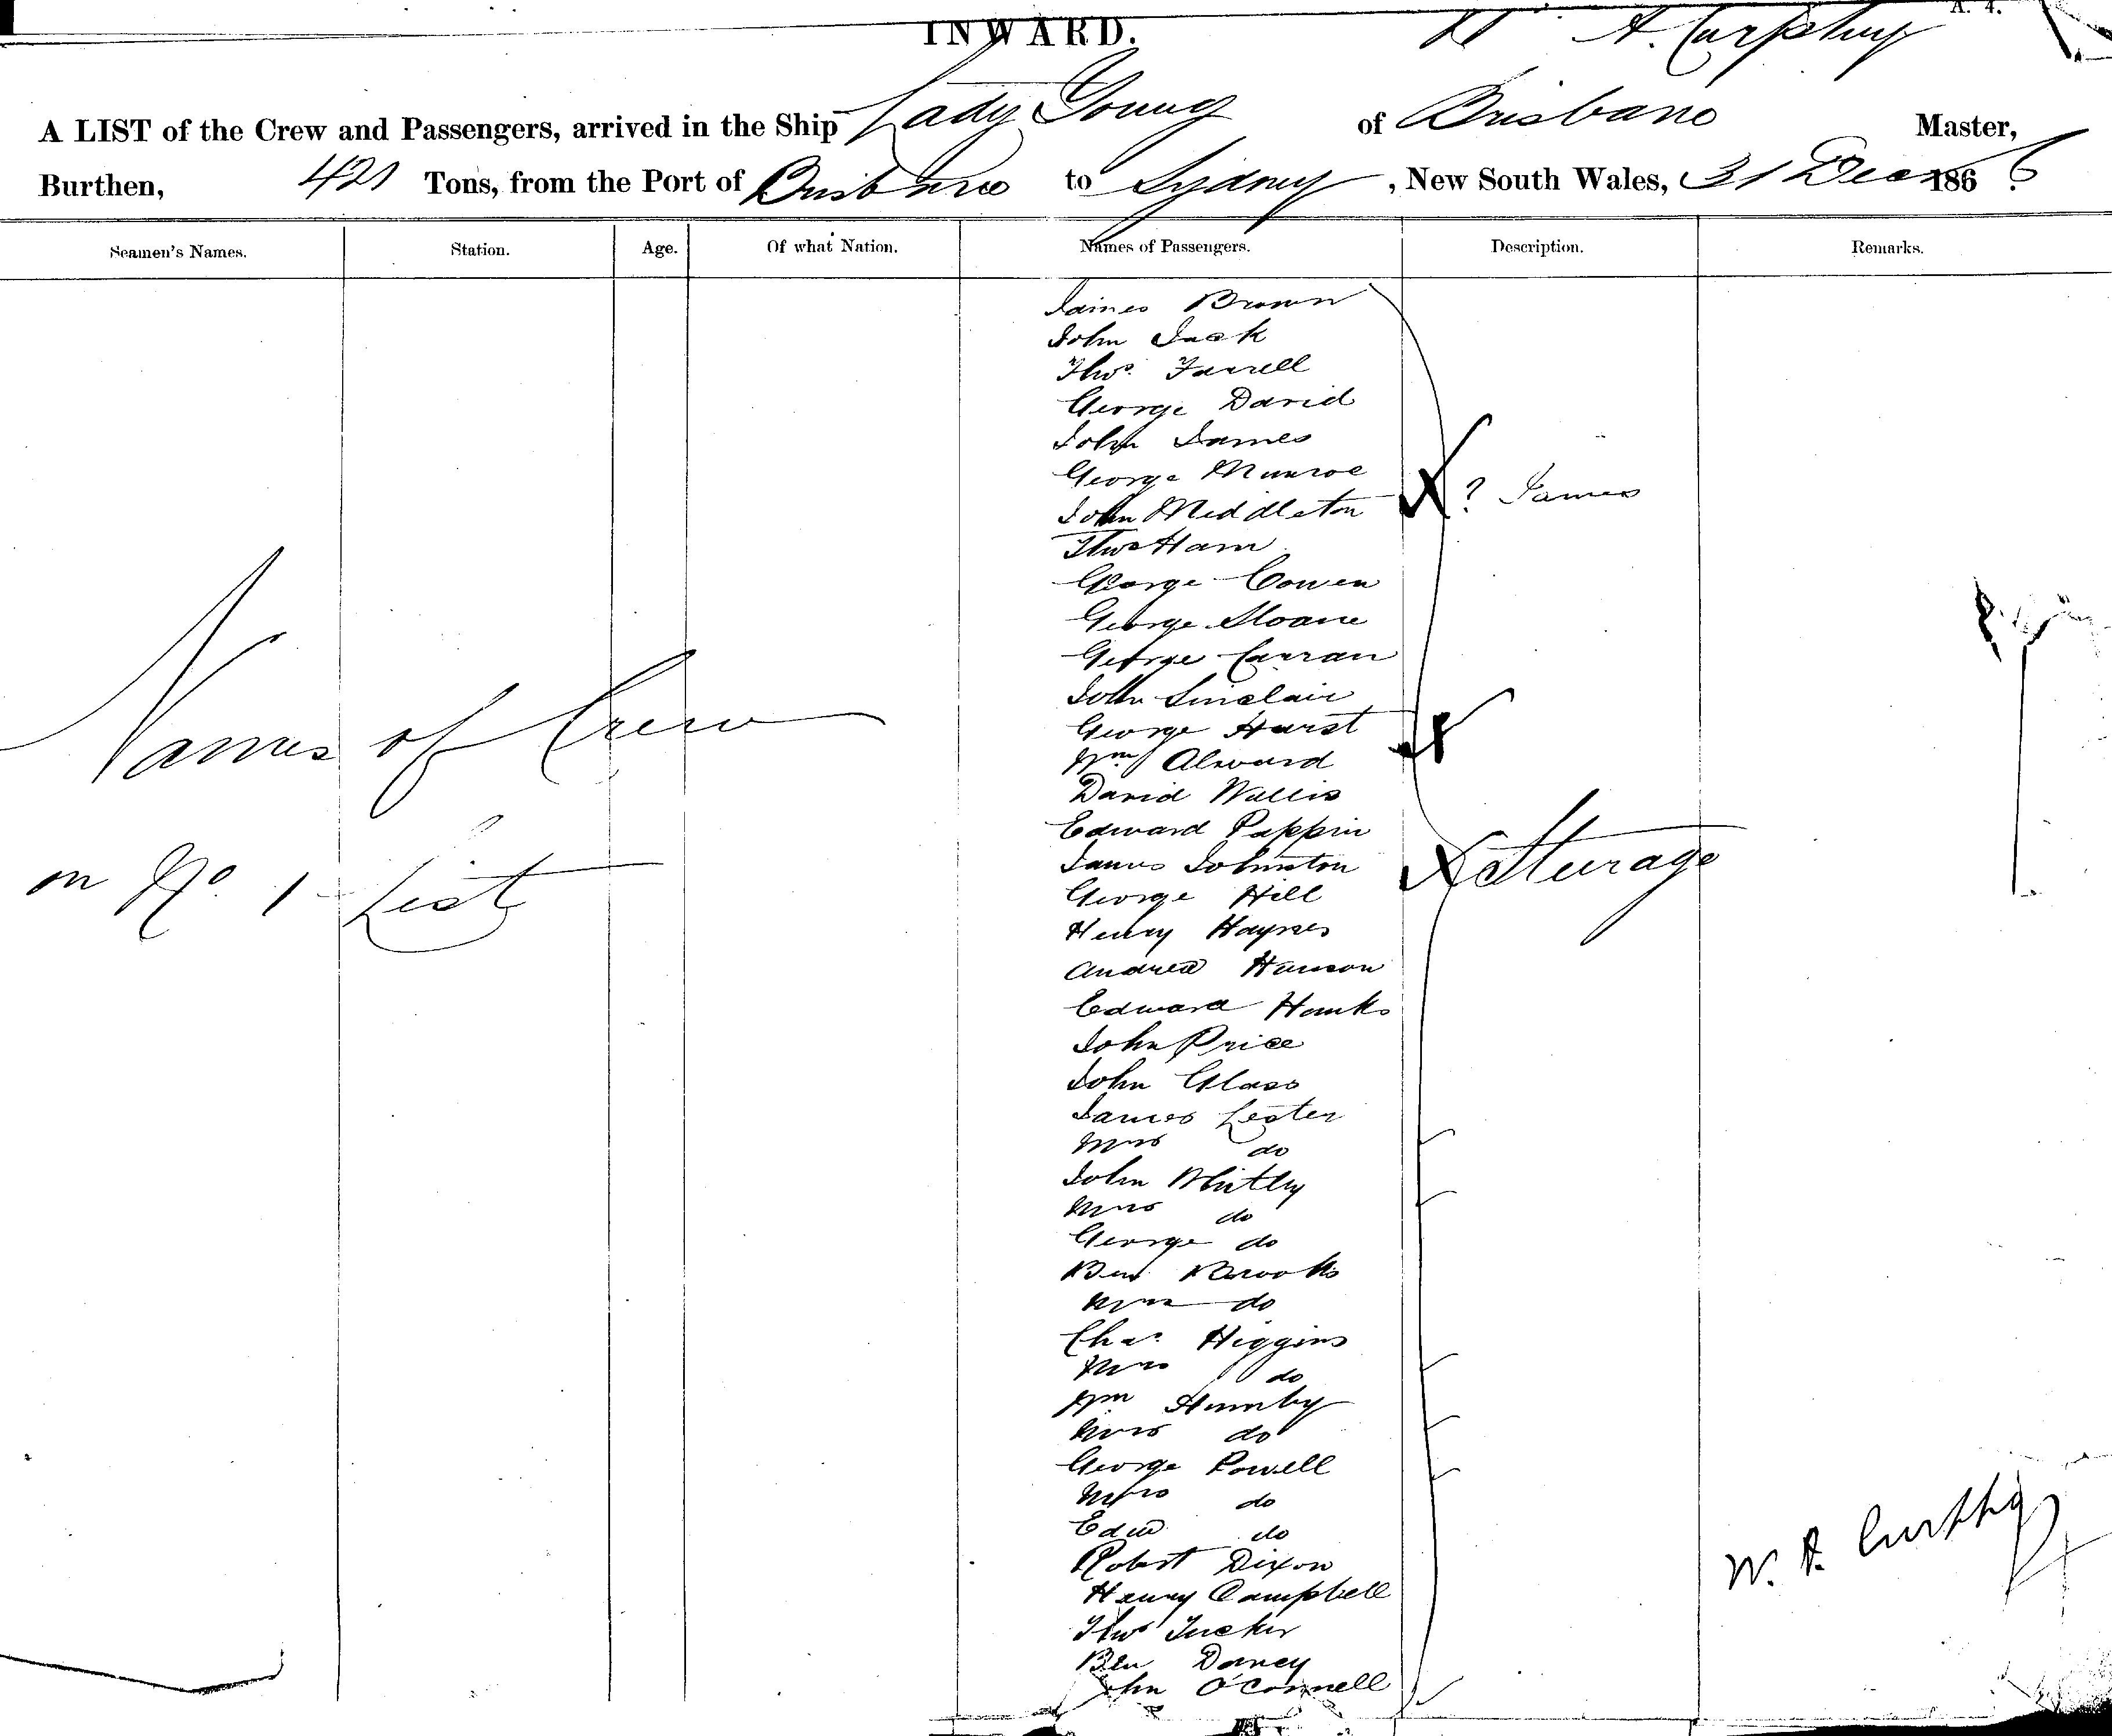 INWARD. A. 4.
A. Curphey
A LIST of the Crew and Passengers, arrived in the Ship Lady Young of Brisbane Master,
Burthen, 421 Tons, from the Port of Brisbane to Sydney, New South Wales, 31 Decr 1866
Seamen's Names. Station. Age. Of what Nation. Names of Passengers. Description. Remarks.
James Brown
John Jack
Thos. Farrell
George David
John James
George Munroe
John Middleton X ? James
Thos Ham
George Cowen
George Sloane
George Curran
John Sinclair
George Hurst
Names of Crew
Wm Alward
David Wallis
Edward Pappin
James Johnston X Sturage
on No. 1 List
George Hill
Henry Haynes
Andrew Hanson
Edward Hanks
John Price
John Glass
James Lester
Mrs do
John Whitley
Mrs do
George do
Ben Brooks
Mrs do
Chas. Higgins
Mrs do
Wm Humby
Mrs do
George Powell
Mrs do
Edw do
Robert Dixon
W. A. Curphey
Henry Campbell
Thos Tucker
Ben Dancy
John O'Connell